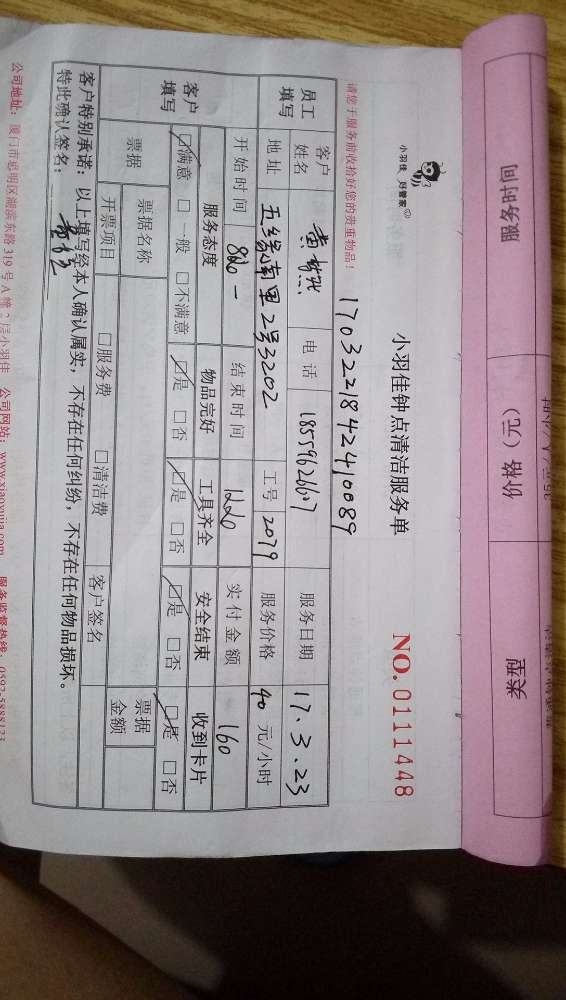 服务时间 价格（元） 类型
小羽佳 好管家
小羽佳钟点清洁服务单
NO. 0111448
1703221842410089
请您于服务前收拾好您的贵重物品！
员工填写 客户姓名 电话 18559626607 服务日期 17.3.23
地址 五缘南里2号3202 工号 2079 服务价格 40 元/小时
开始时间 结束时间 实付金额 160
客户填写 服务态度 物品完好 工具齐全 安全结束 收到卡片
☑满意 □一般 □不满意 ☑是 □否 ☑是 □否 ☑是 □否 ☑是 □否
票据 票据名称 票据金额
开票项目 □服务费 □清洁费 客户签名
客户特别承诺：以上填写经本人确认属实，不存在任何纠纷，不存在任何物品损坏。
特此确认签名：
公司地址：厦门市思明区湖滨东路319号A幢 小羽佳 公司网站：www.xiaoyujia.com 服务监督热线：0592-5888123